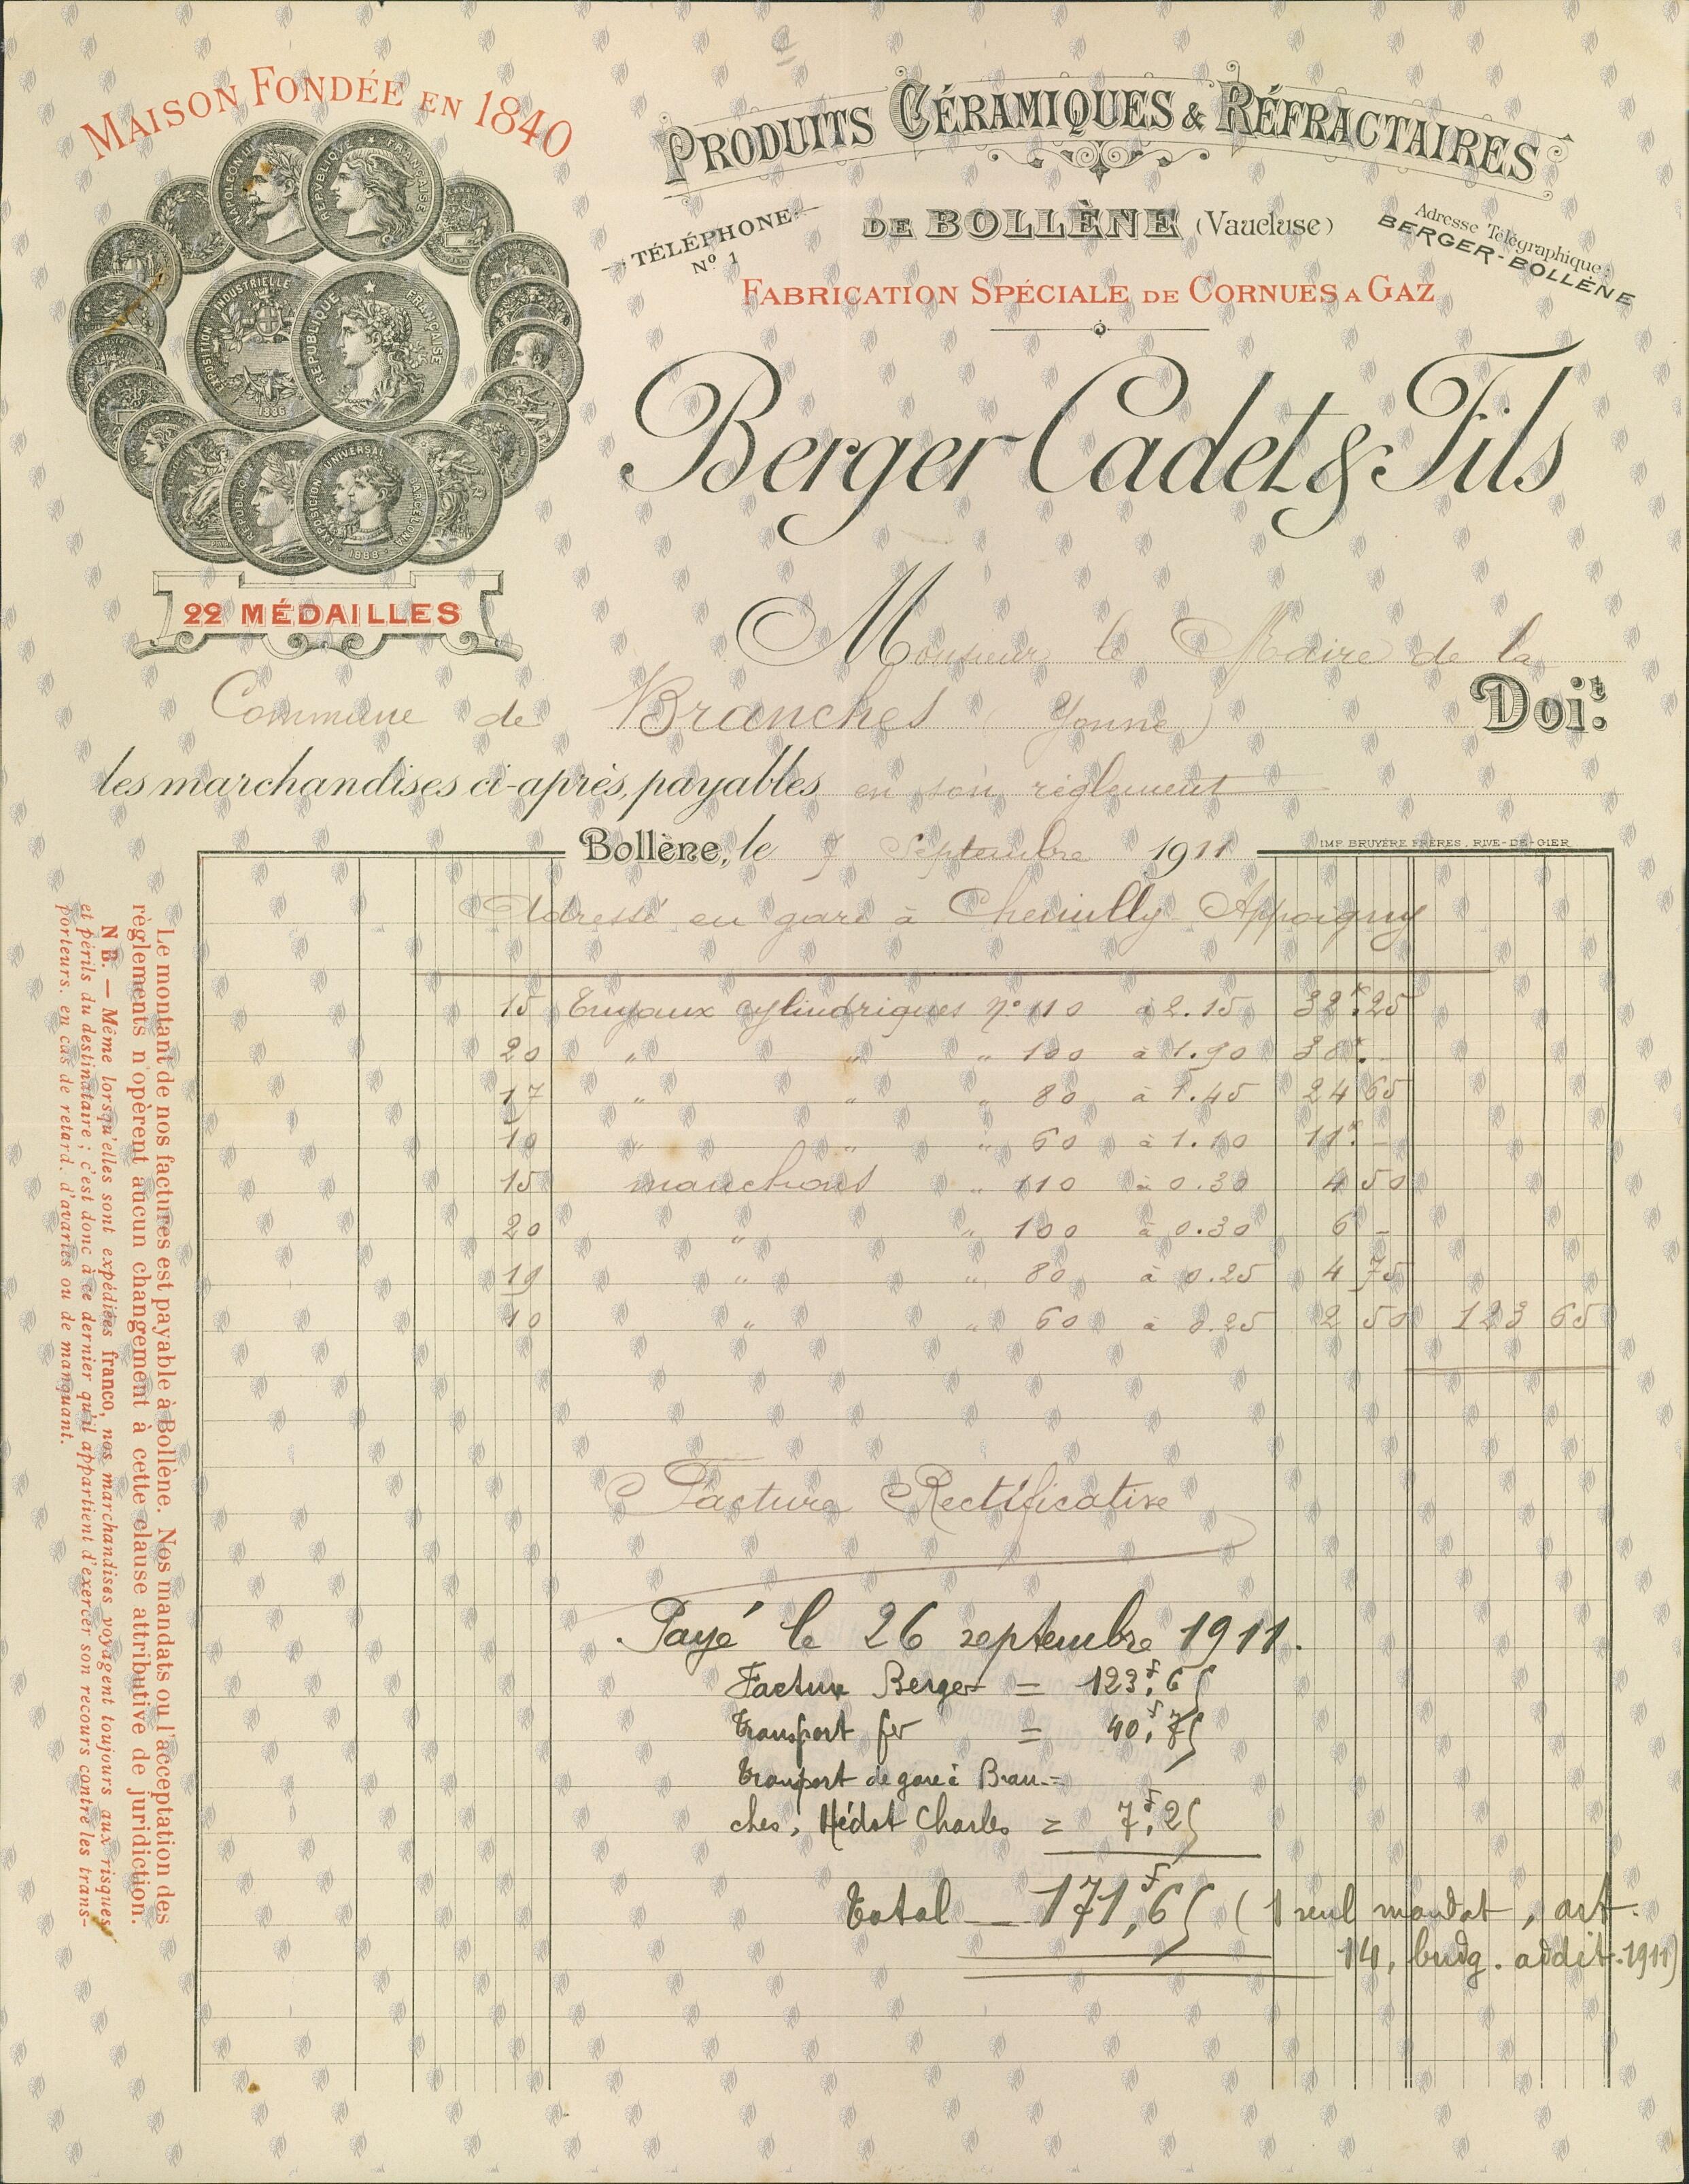 MAISON FONDÉE EN 1840
NAPOLÉON III
RÉPUBLIQUE FRANÇAISE
EXPOSITION INDUSTRIELLE
1886
RÉPUBLIQUE FRANÇAISE
EXPOSICION UNIVERSAL BARCELONA
1888
22 MÉDAILLES
PRODUITS CÉRAMIQUES & RÉFRACTAIRES
DE BOLLÈNE (Vaucluse)
TÉLÉPHONE
Nº 1
Adresse Télégraphique:
BERGER-BOLLÈNE
FABRICATION SPÉCIALE DE CORNUES A GAZ
Berger Cadet & Fils
Monsieur le Maire de la
Commune de Branches (Yonne) Doit
les marchandises ci-après, payables en son règlement
Bollène, le 7 Septembre 1911
IMP. BRUYÈRE FRÈRES, RIVE-DE-GIER
Adressé en gare à Chemilly Appoigny
15 Tuyaux cylindriques nº 110 à 2.15 32.25
20 " " " 100 à 1.90 38.-
17 " " " 80 à 1.45 24 65
10 " " " 60 à 1.10 11.-
15 manchons " 110 à 0.30 4 50
20 " " 100 à 0.30 6 -
19 " " 80 à 0.25 4 75
10 " " 60 à 0.25 2 50 123 65
Facture Rectificative
Payé le 26 septembre 1911.
Facture Berger = 123f,65
Transport fer = 40f,75
Transport de gare à Bran-
ches, Hédot Charles = 7f,25
Total — 171f,65 (1 seul mandat, art.
14, budg. addit. 1911)
Le montant de nos factures est payable à Bollène. Nos mandats ou l'acceptation des
règlements n'opèrent aucun changement à cette clause attributive de juridiction.
N B. — Même lorsqu'elles sont expédiées franco, nos marchandises voyagent toujours aux risques
et périls du destinataire; c'est donc à ce dernier qu'il appartient d'exercer son recours contre les trans-
porteurs, en cas de retard, d'avaries ou de manquant.